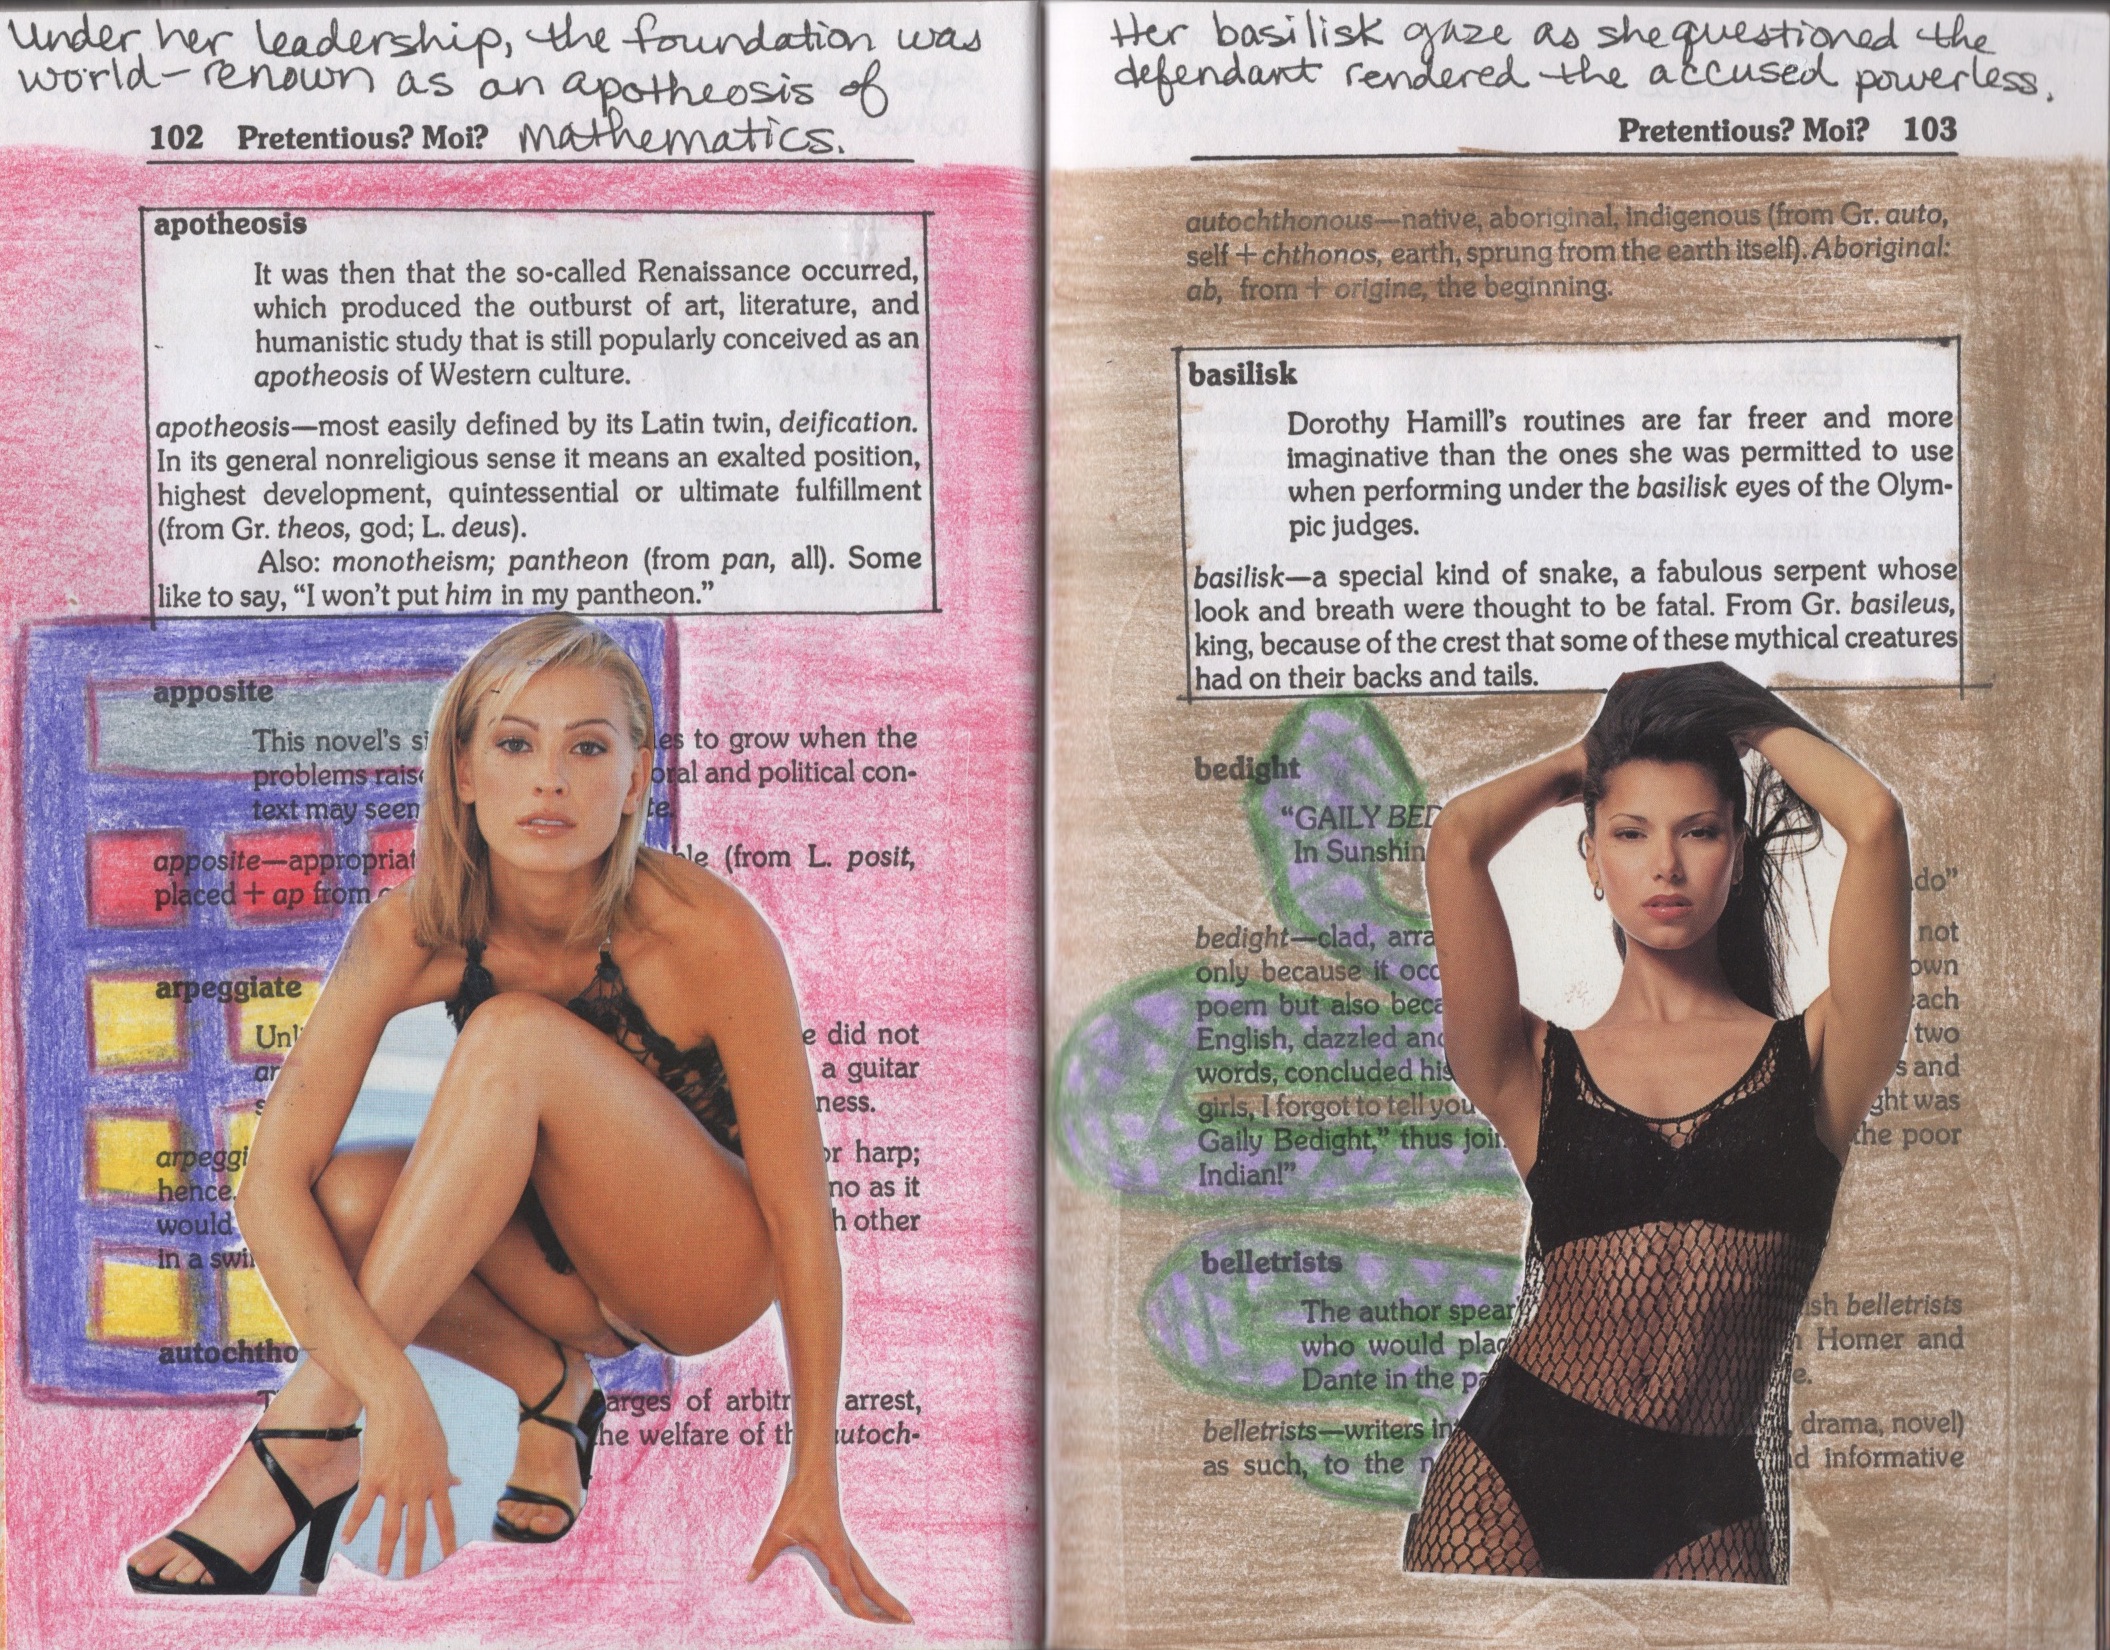 Under her leadership, the foundation was
world-renown as an apotheosis of
mathematics.
102 Pretentious? Moi?
apotheosis
It was then that the so-called Renaissance occurred,
which produced the outburst of art, literature, and
humanistic study that is still popularly conceived as an
apotheosis of Western culture.
apotheosis—most easily defined by its Latin twin, deification.
In its general nonreligious sense it means an exalted position,
highest development, quintessential or ultimate fulfillment
(from Gr. theos, god; L. deus).
Also: monotheism; pantheon (from pan, all). Some
like to say, “I won’t put him in my pantheon.”
apposite
This novel’s to grow when the
problems and political con-
text may
apposite— (from L. posit,
placed + ap from
arpeggiate
did not
a guitar
harp;
hence as it
would other
in a
arbitr arrest,
the welfare of autoch-
Her basilisk gaze as she questioned the
defendant rendered the accused powerless.
Pretentious? Moi? 103
autochthonous—native, aboriginal, indigenous (from Gr. auto,
self + chthonos, earth, sprung from the earth itself). Aboriginal:
ab, from + origine, the beginning.
basilisk
Dorothy Hamill’s routines are far freer and more
imaginative than the ones she was permitted to use
when performing under the basilisk eyes of the Olym-
pic judges.
basilisk—a special kind of snake, a fabulous serpent whose
look and breath were thought to be fatal. From Gr. basileus,
king, because of the crest that some of these mythical creatures
had on their backs and tails.
bedight
“GAILY
In do”
bedight—clad, not
only because it
poem but also
English, dazzled two
words, concluded his and
girls, I forgot to tell you was
Gaily Bedight,” thus the poor
Indian!”
belletrists
The author belletrists
who would Homer and
Dante in the
belletrists—writers drama, novel)
as such, to the informative